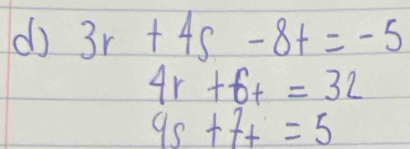 d) 3r + 4s - 8t = -5
4r + 6t = 32
9s + 7t = 5